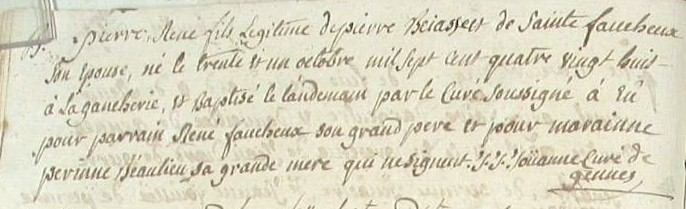 pierre, René fils Legitime de pierre Beiasse et de Sainte faucheux
Son Epouse, né le trente et un octobre mil Sept Cent quatre vingt huit
à La gaucherie, et Baptisé le landemain par le Curé Soussigné à Eû
pour parrain René faucheux son grand pere et pour marainne
perinne Beaulieu sa grande mere qui ne signent. J. J. Joüanne Curé de
gennes